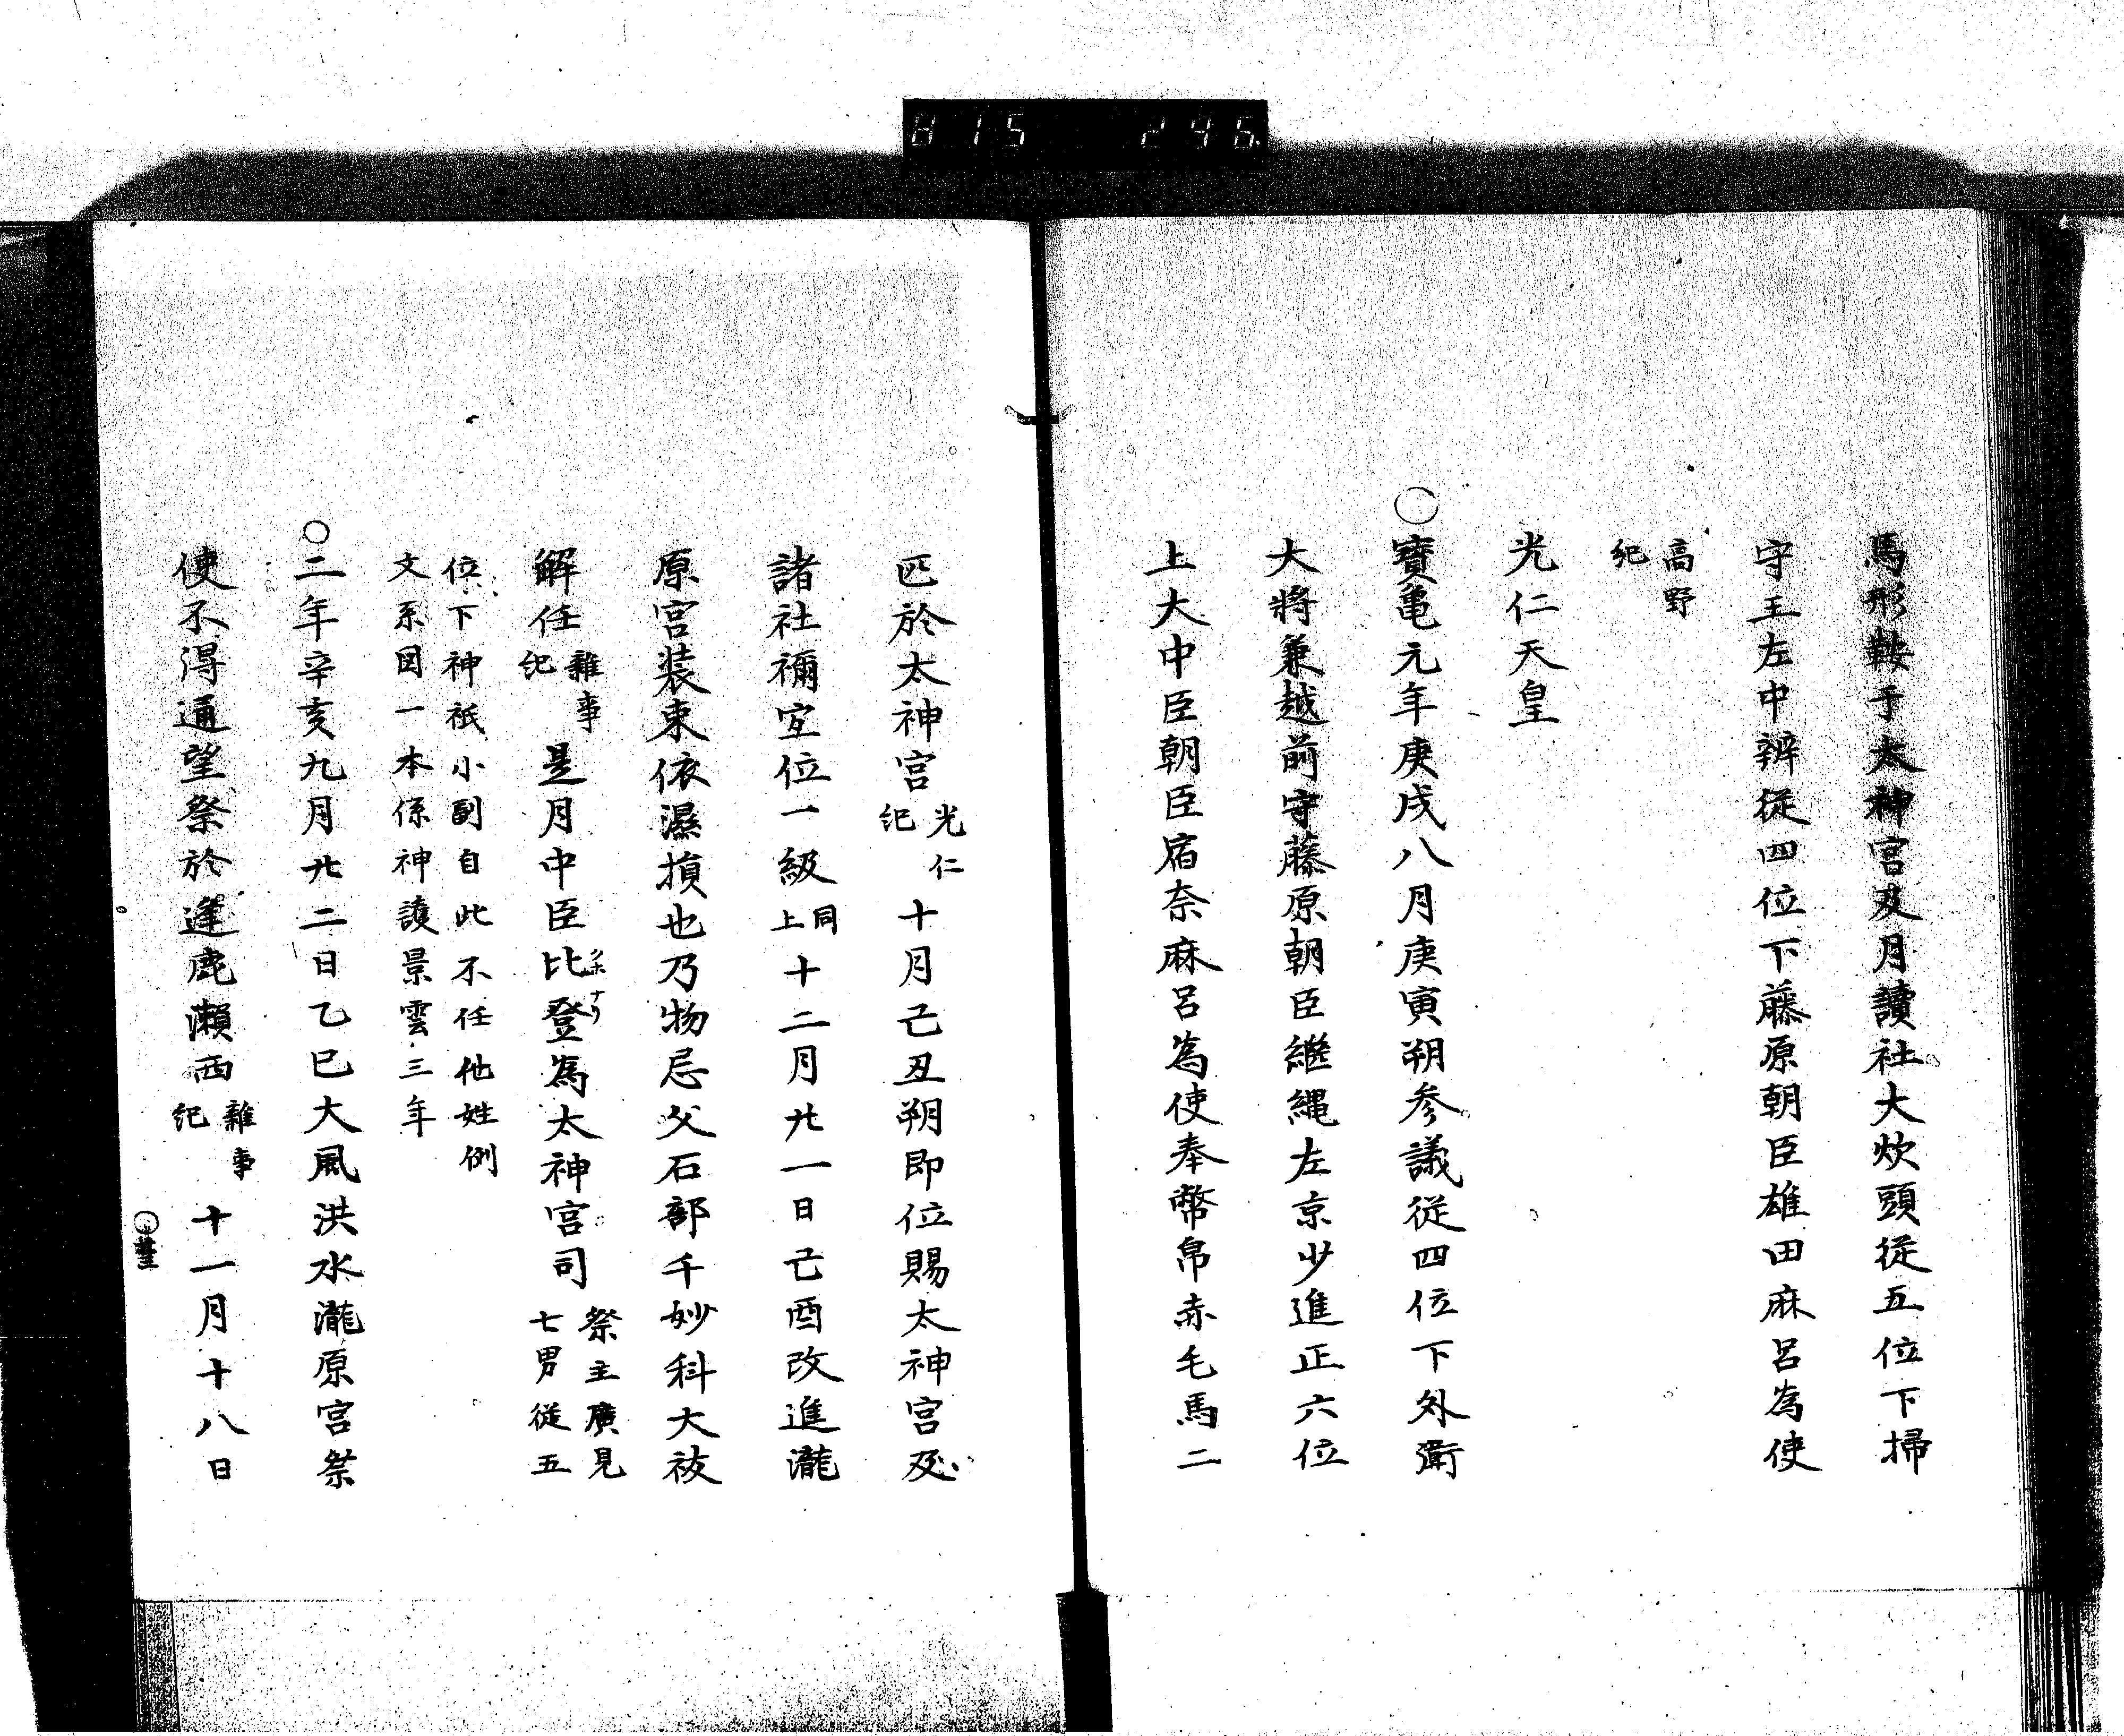 815 246
馬形鞍于太神宮及月讀社大炊頭従五位下掃
守王左中辨従四位下藤原朝臣雄田麻呂為使
高野
紀
光仁天皇
○寶亀元年庚戌八月庚寅朔参議従四位下外衛
大将兼越前守藤原朝臣継縄左京少進正六位
上大中臣朝臣宿奈麻呂為使奉幣帛赤毛馬二
匹於太神宮光仁紀十月己丑朔即位賜太神宮及
諸社禰宜位一級同上十二月廿一日己酉改進瀧
原宮装束依濕損也乃物忌父石部千妙科大祓
解任雜事紀是月中臣比登為太神宮司祭主廣見七男従五
位下神祇小副自此不任他姓例
文系図一本係神護景雲三年
○二年辛亥九月廿二日乙巳大風洪水瀧原宮祭
使不得通望祭於逢鹿瀬西雜事紀十一月十八日